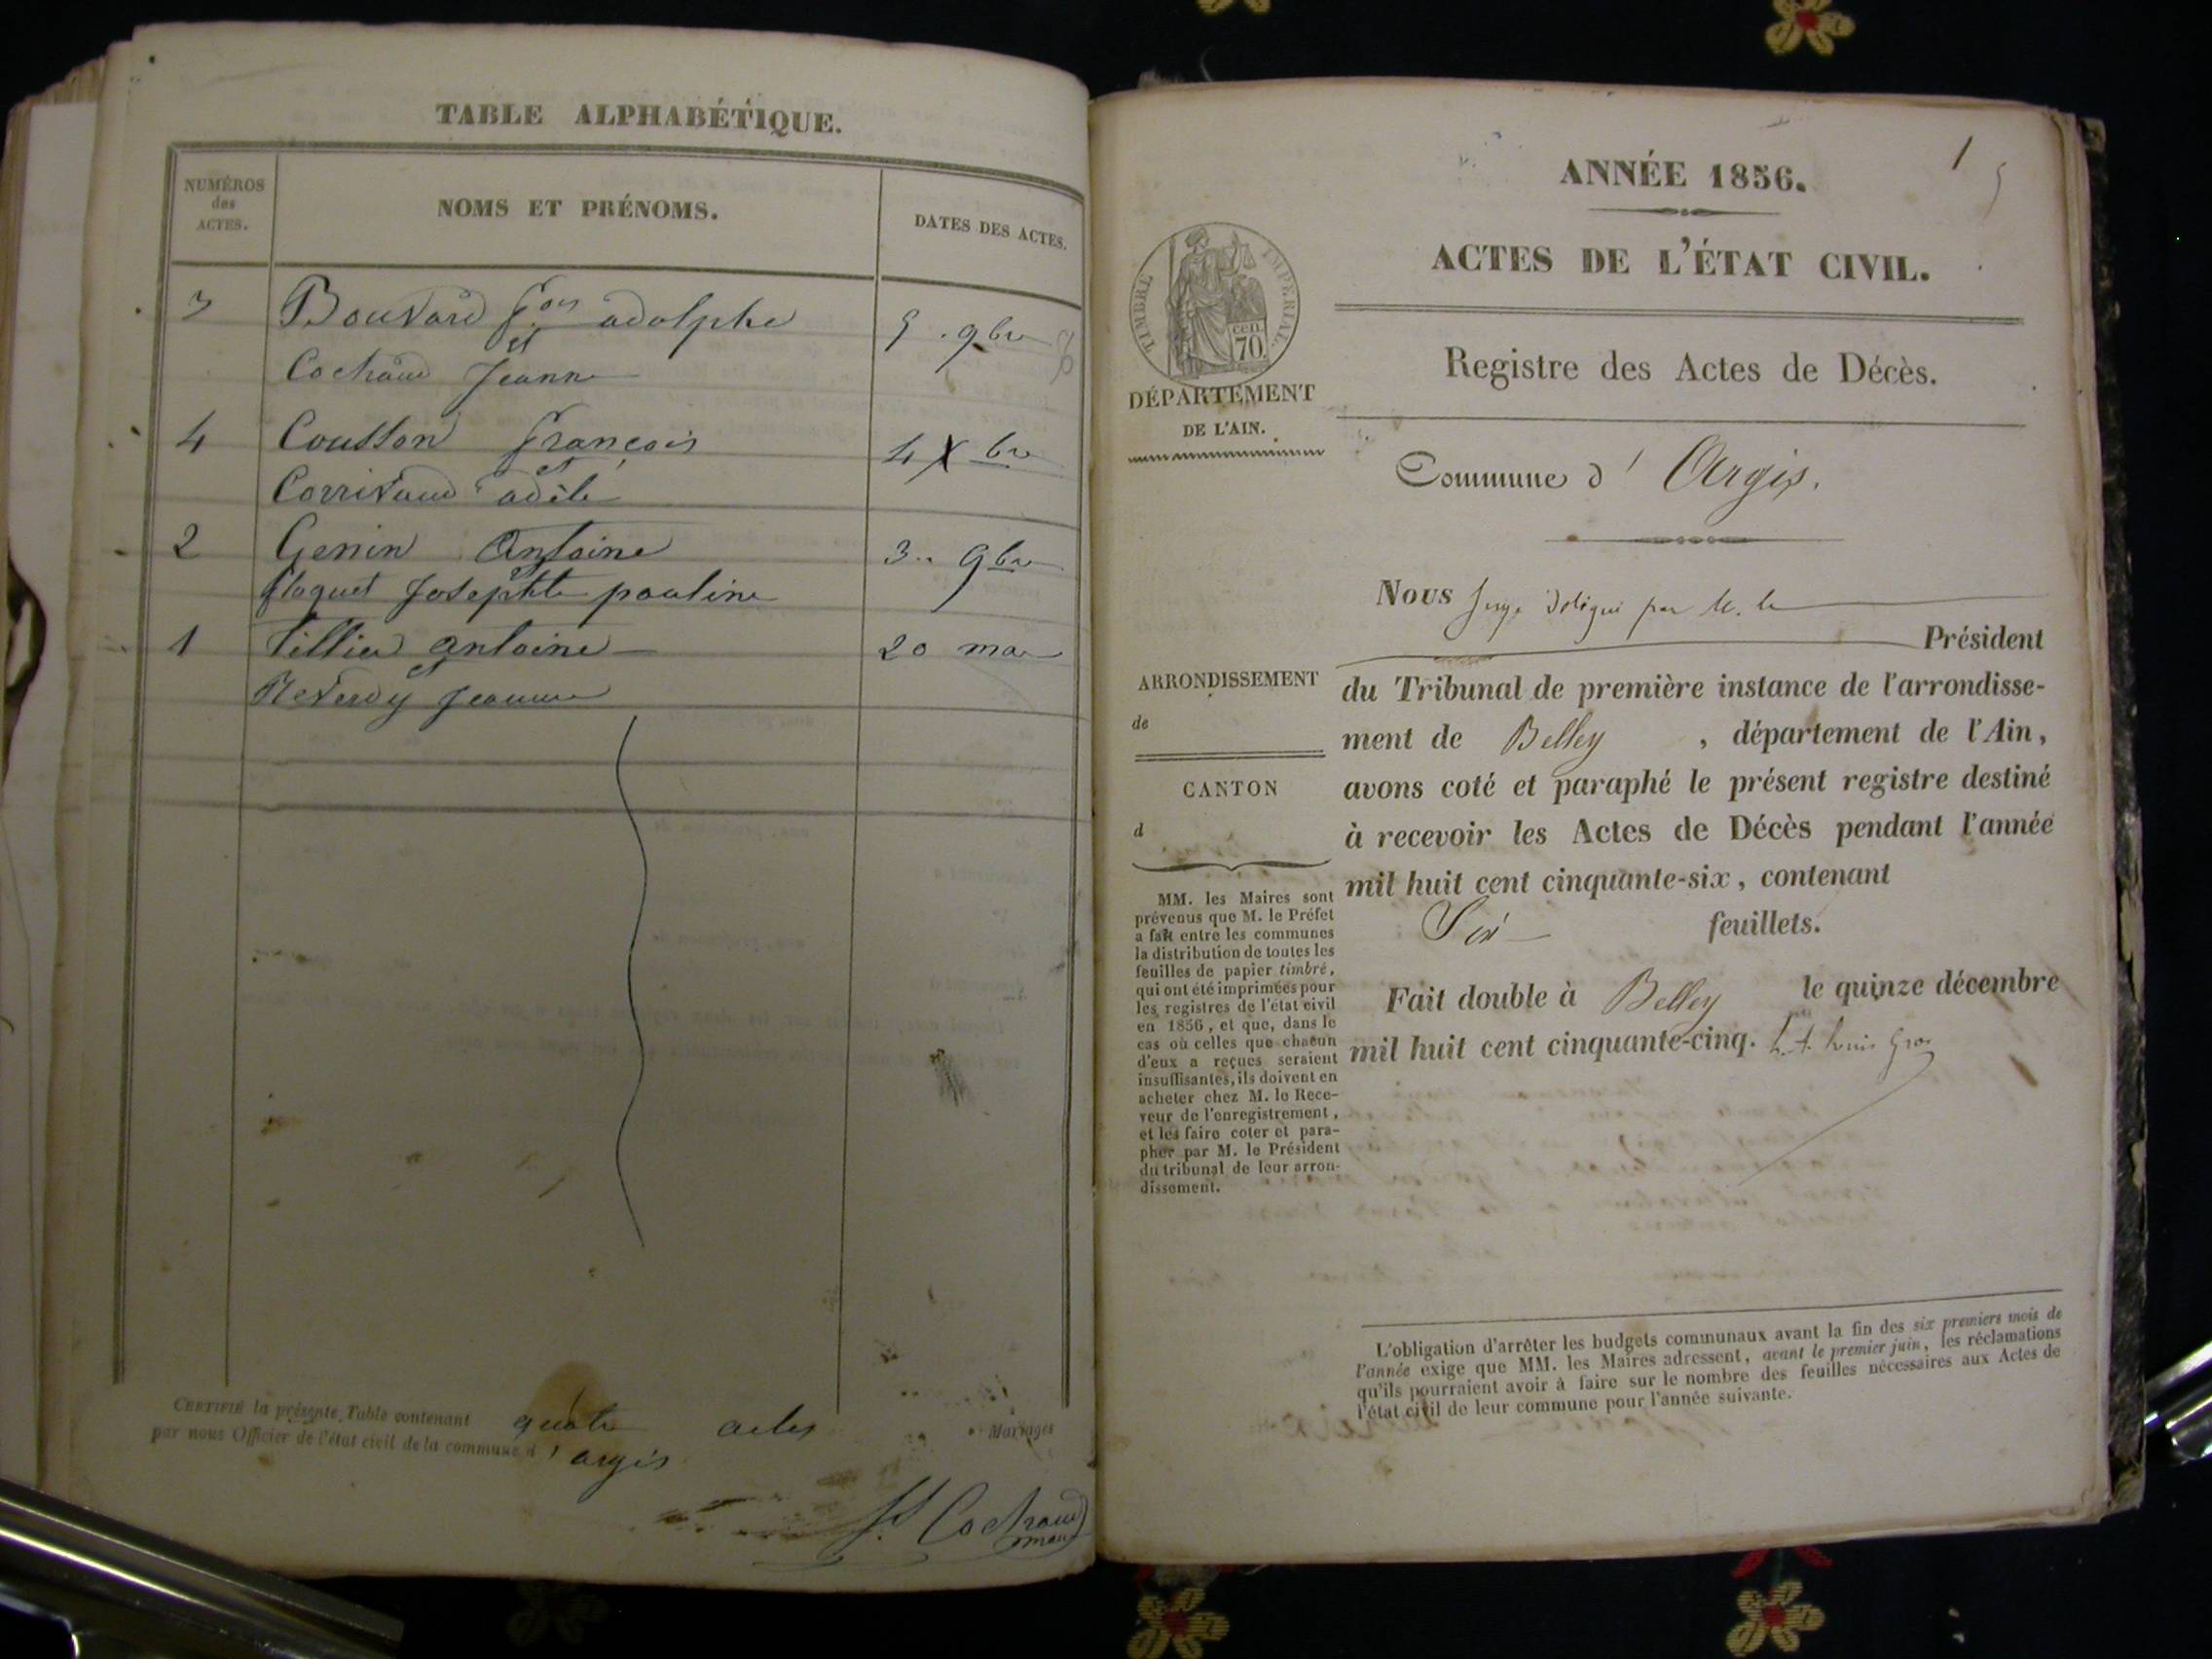 TABLE ALPHABÉTIQUE.
NUMÉROS
des
ACTES.
NOMS ET PRÉNOMS.
DATES DES ACTES.
3 Bouvard fois adolphe 9 . 9bre
et
Cochaud Jeanne
4 Coutton françois 4 Xbre
et
adèle
2 Genin Antoine 3 .. 9bre
et
floquet Josephte pauline
1 Tillier antoine 20 mai
et
Reverdy Jeanne
CERTIFIÉ la présente Table contenant quatre actes Mariages
par nous Officier de l'état civil de la commune d' argis
Cochaud
maire
1
5
ANNÉE 1856.
ACTES DE L'ÉTAT CIVIL.
TIMBRE IMPÉRIAL
cen.
70.
Registre des Actes de Décès.
DÉPARTEMENT
DE L'AIN.
Commune d' Argis.
Nous Juge délégué par M. le
Président
du Tribunal de première instance de l'arrondisse-
ment de Belley , département de l'Ain,
avons coté et paraphé le présent registre destiné
à recevoir les Actes de Décès pendant l'année
mil huit cent cinquante-six, contenant
Six feuillets.
Fait double à Belley le quinze décembre
mil huit cent cinquante-cinq. Louis Gros
ARRONDISSEMENT
de
CANTON
d
MM. les Maires sont
prévenus que M. le Préfet
a fait entre les communes
la distribution de toutes les
feuilles de papier timbré,
qui ont été imprimées pour
les registres de l'état civil
en 1856, et que, dans le
cas où celles que chacun
d'eux a reçues seraient
insuffisantes, ils doivent en
acheter chez M. le Rece-
veur de l'enregistrement,
et les faire coter et para-
pher par M. le Président
du tribunal de leur arron-
dissement.
L'obligation d'arrêter les budgets communaux avant la fin des six premiers mois de
l'année exige que MM. les Maires adressent, avant le premier juin, les réclamations
qu'ils pourraient avoir à faire sur le nombre des feuilles nécessaires aux Actes de
l'état civil de leur commune pour l'année suivante.